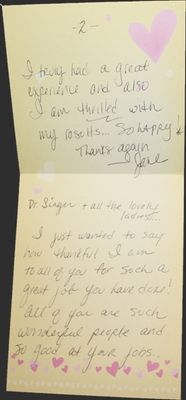 - 2 -
I truly had a great
experience and also
I am thrilled with
my results... So happy!
Thanks again
Jane
Dr. Singer + all the lovely
ladies...
I just wanted to say
how thankful I am
to all of you for such a
great job you have done!
All of you are such
wonderful people and
so good at your jobs..